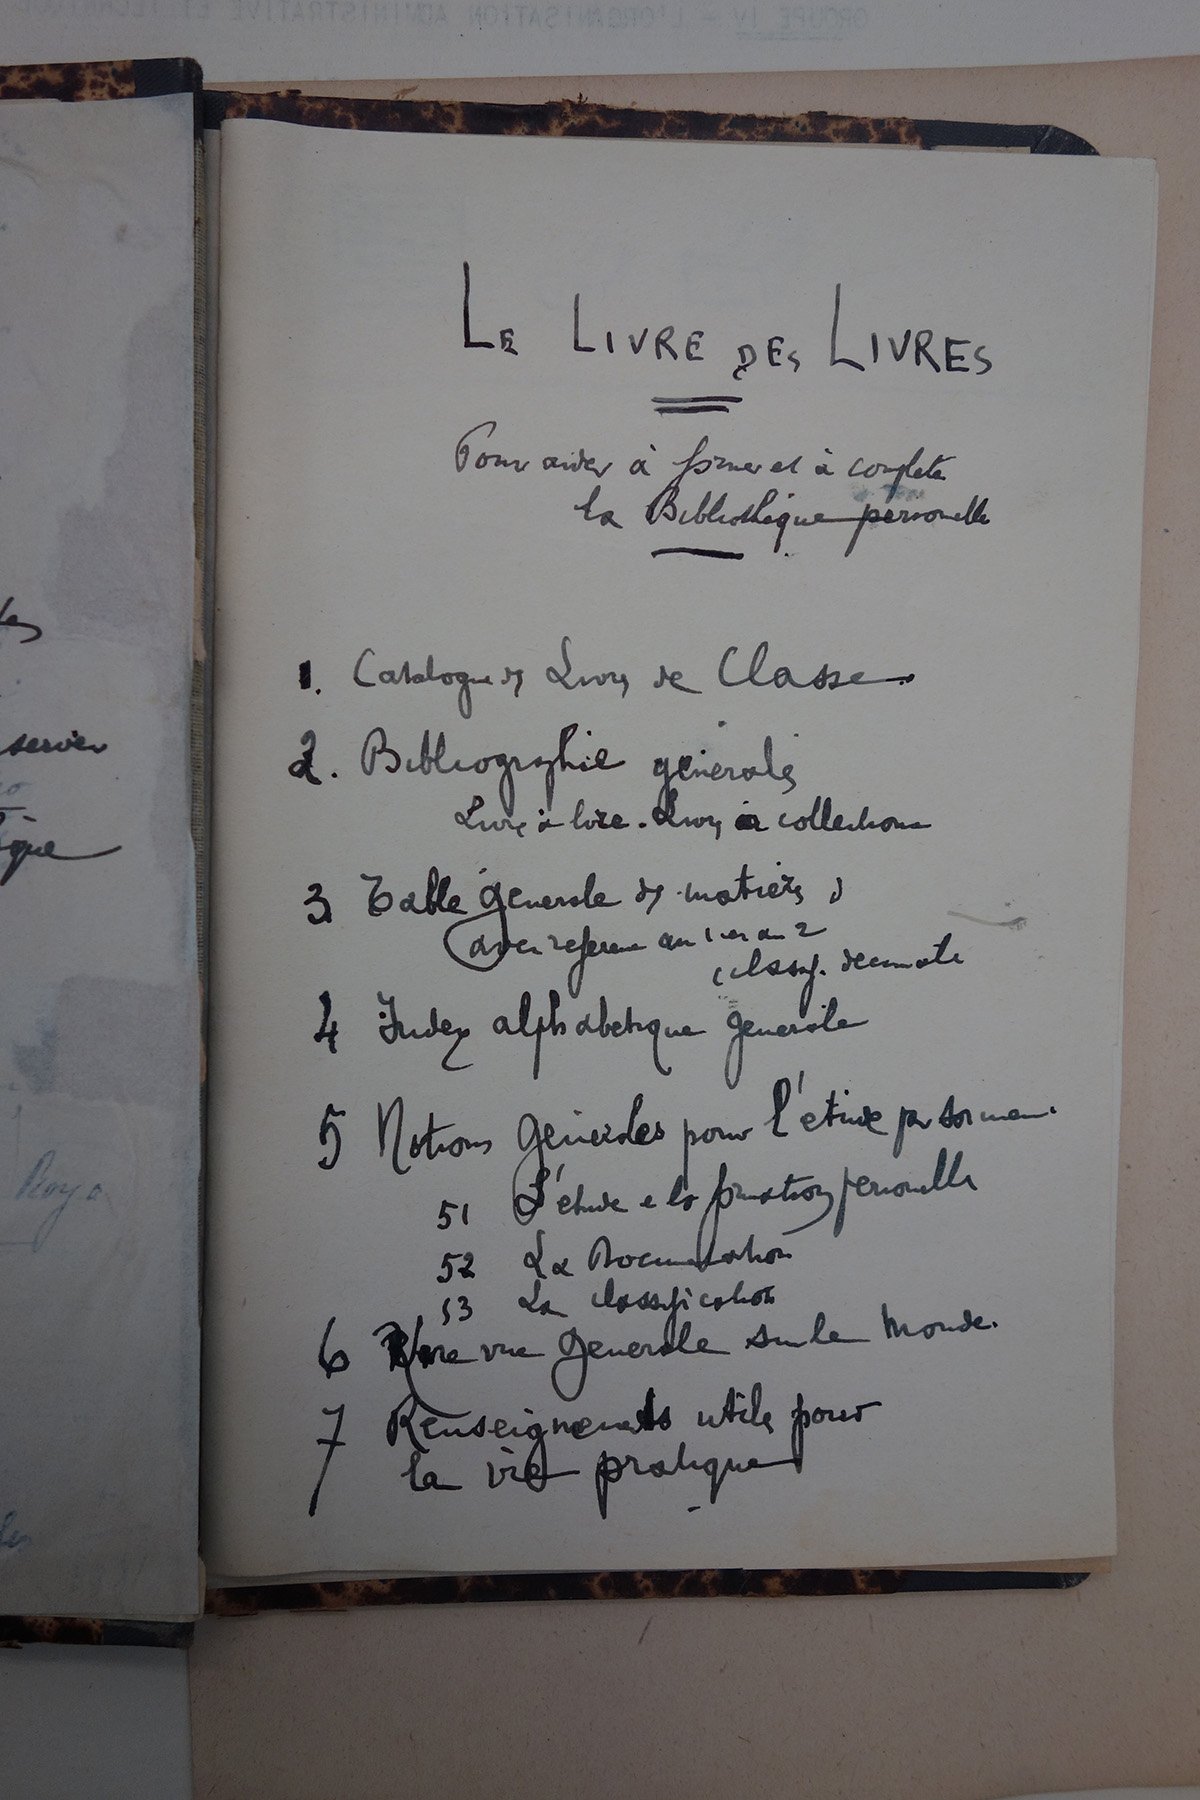 GROUPE IV - L'ORGANISATION ADMINISTRATIVE ET TECHNIQUE
LE LIVRE DES LIVRES
Pour aider à former et à compléter
la Bibliothèque personnelle
1. Catalogue des Livres de Classe
2. Bibliographie générale
Livres à lire. Livres à collectionner
3 Table générale des matières
(avec référence au 1 et au 2
classif. décimale
4 Index alphabétique générale
5 Notions générales pour l'étude
51 L'étude et la formation personnelle
52 La Documentation
53 La classification
6 vue générale sur le Monde.
7 Renseignements utiles pour
la vie pratique
server
ique